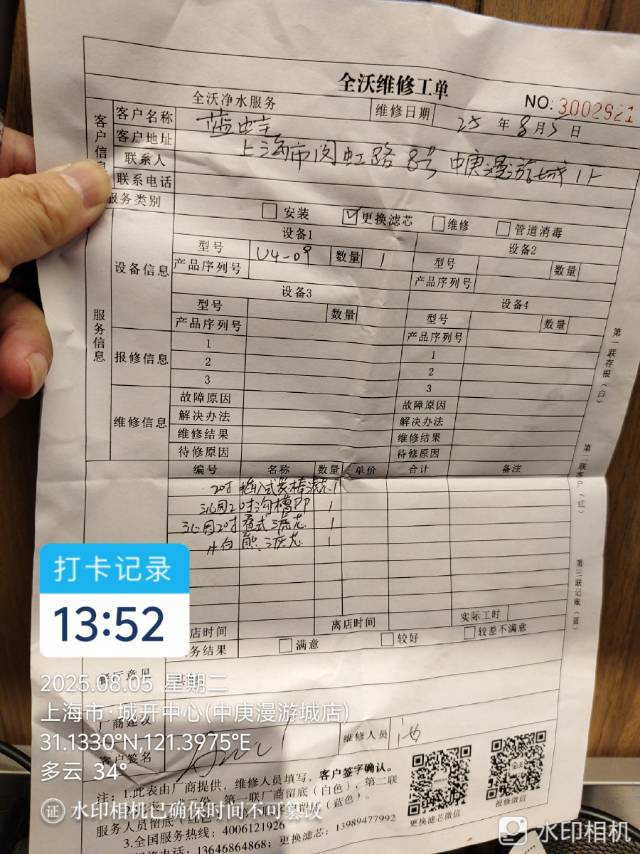 全沃维修工单
全沃净水服务 维修日期 25 年 8 月 5 日 NO. 3002921
客户信息
客户名称 蓝蛙
客户地址 上海市闵虹路 8号 中庚漫游城 1F
联系人
联系电话
服务类别 安装 更换滤芯 维修 管道消毒
服务信息
设备信息 设备1 设备2
型号 U4-09 数量 1 型号 数量
产品序列号 产品序列号
设备3 设备4
型号 数量 型号 数量
产品序列号 产品序列号
报修信息 1 1
2 2
3 3
维修信息 故障原因 故障原因
解决办法 解决办法
维修结果 维修结果
待修原因 待修原因
编号 名称 数量 单价 合计 备注
20寸 滤芯 1
20寸沟槽PP 1
20寸 滤芯 1
滤芯 1
店时间 离店时间 实际工时
务结果 满意 较好 较差不满意
餐厅意见
厂商建议
客户签名 维修人员
注：1.此表由厂商提供，维修人员填写，客户签字确认。
第一联厂商留底（白色），第二联
服务人员留底 （蓝色）。
3.全国服务热线：4006121926
电话：13646864868；更换滤芯：13989477992
更换滤芯微信
报修微信
第一联存根（白）
第二联客户（红）
第三联记账（蓝）
打卡记录
13:52
2025.08.05 星期二
上海市·城开中心(中庚漫游城店)
31.1330°N,121.3975°E
多云 34°
证 水印相机已确保时间不可篡改
水印相机